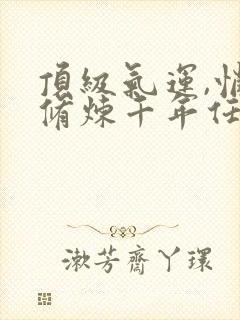 頂級氣運,悄
脩煉千年任
漱芳齋丫環